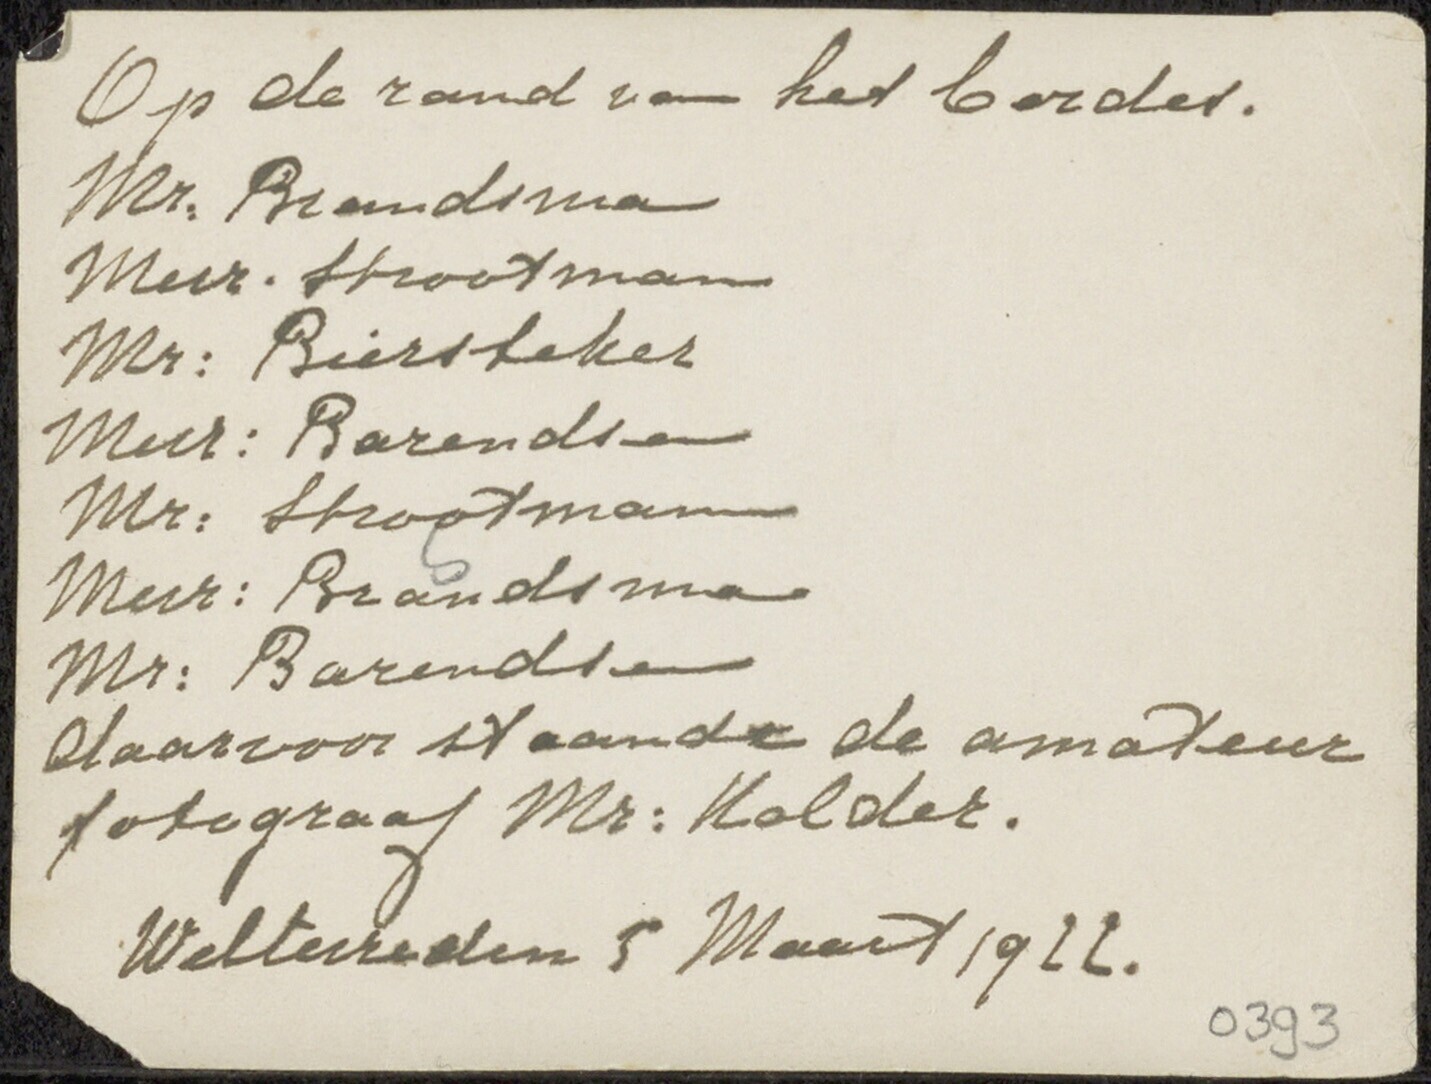 Op de rand van het bordes.
Mr. Brandsma
Mevr. Strootman
Mr: Biersteker
Mevr: Barendsen
Mr: Strootman
Mevr: Brandsma
Mr: Barendsen
daarvoor staande de amateur
fotograaf Mr: Kolder.
Weltevreden 5 Maart 1922.
0393